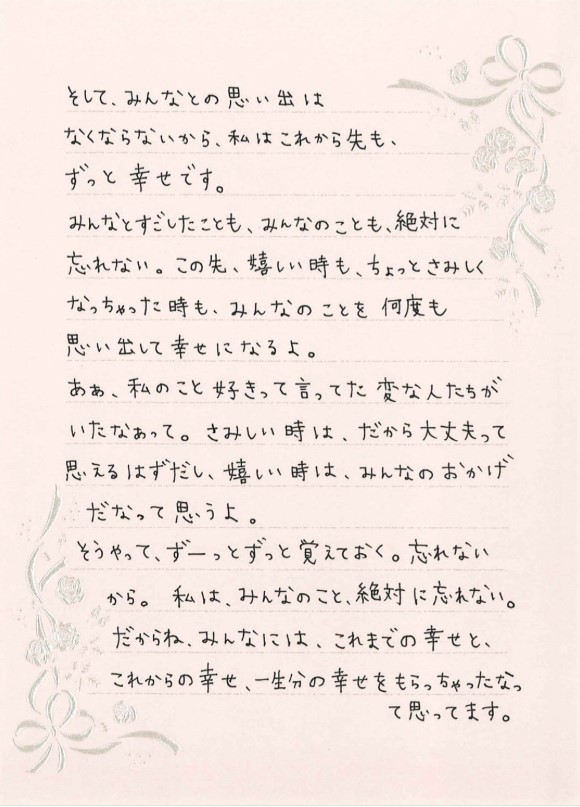 そして、みんなとの思い出は
なくならないから、私はこれから先も、
ずっと幸せです。
みんなとすごしたことも、みんなのことも、絶対に
忘れない。この先、嬉しい時も、ちょっとさみしく
なっちゃった時も、みんなのことを何度も
思い出して幸せになるよ。
あぁ、私のこと好きって言ってた変な人たちが
いたなぁって。さみしい時は、だから大丈夫って
思えるはずだし、嬉しい時は、みんなのおかげ
だなって思うよ。
そうやって、ずーっとずっと覚えておく。忘れない
から。私は、みんなのこと、絶対に忘れない。
だからね、みんなには、これまでの幸せと、
これからの幸せ、一生分の幸せをもらっちゃったなっ
て思ってます。